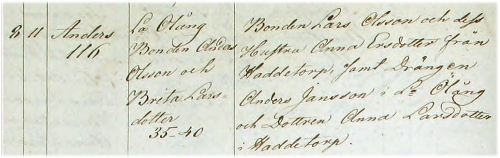 8 11 Anders
116
La Öläng
Bonden Andas
Olsson och
Brita Lars-
dotter
35-40
Bonden Lars Olsson och dess
Hustru Anna Ersdotter från
Haddetorp, samt Drängen
Anders Jansson i La Öläng
och Dottren Anna Larsdotter
i Haddetorp.